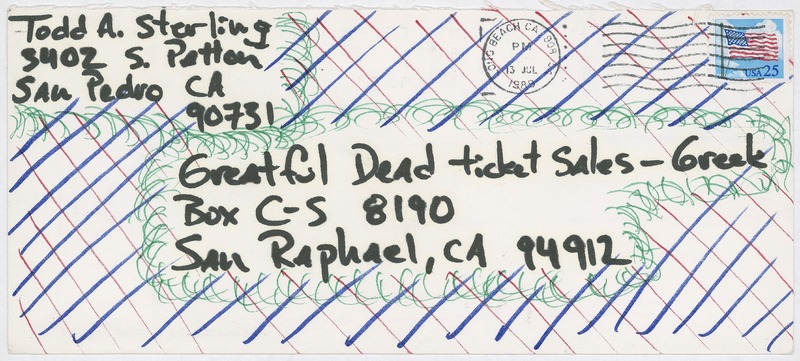 Todd A. Sterling
3402 S. Patton
San Pedro CA
90731
PM
13 JUL
1989
USA 25
Greatful Dead ticket Sales - Greek
Box C-S 8190
San Raphael, CA 94912